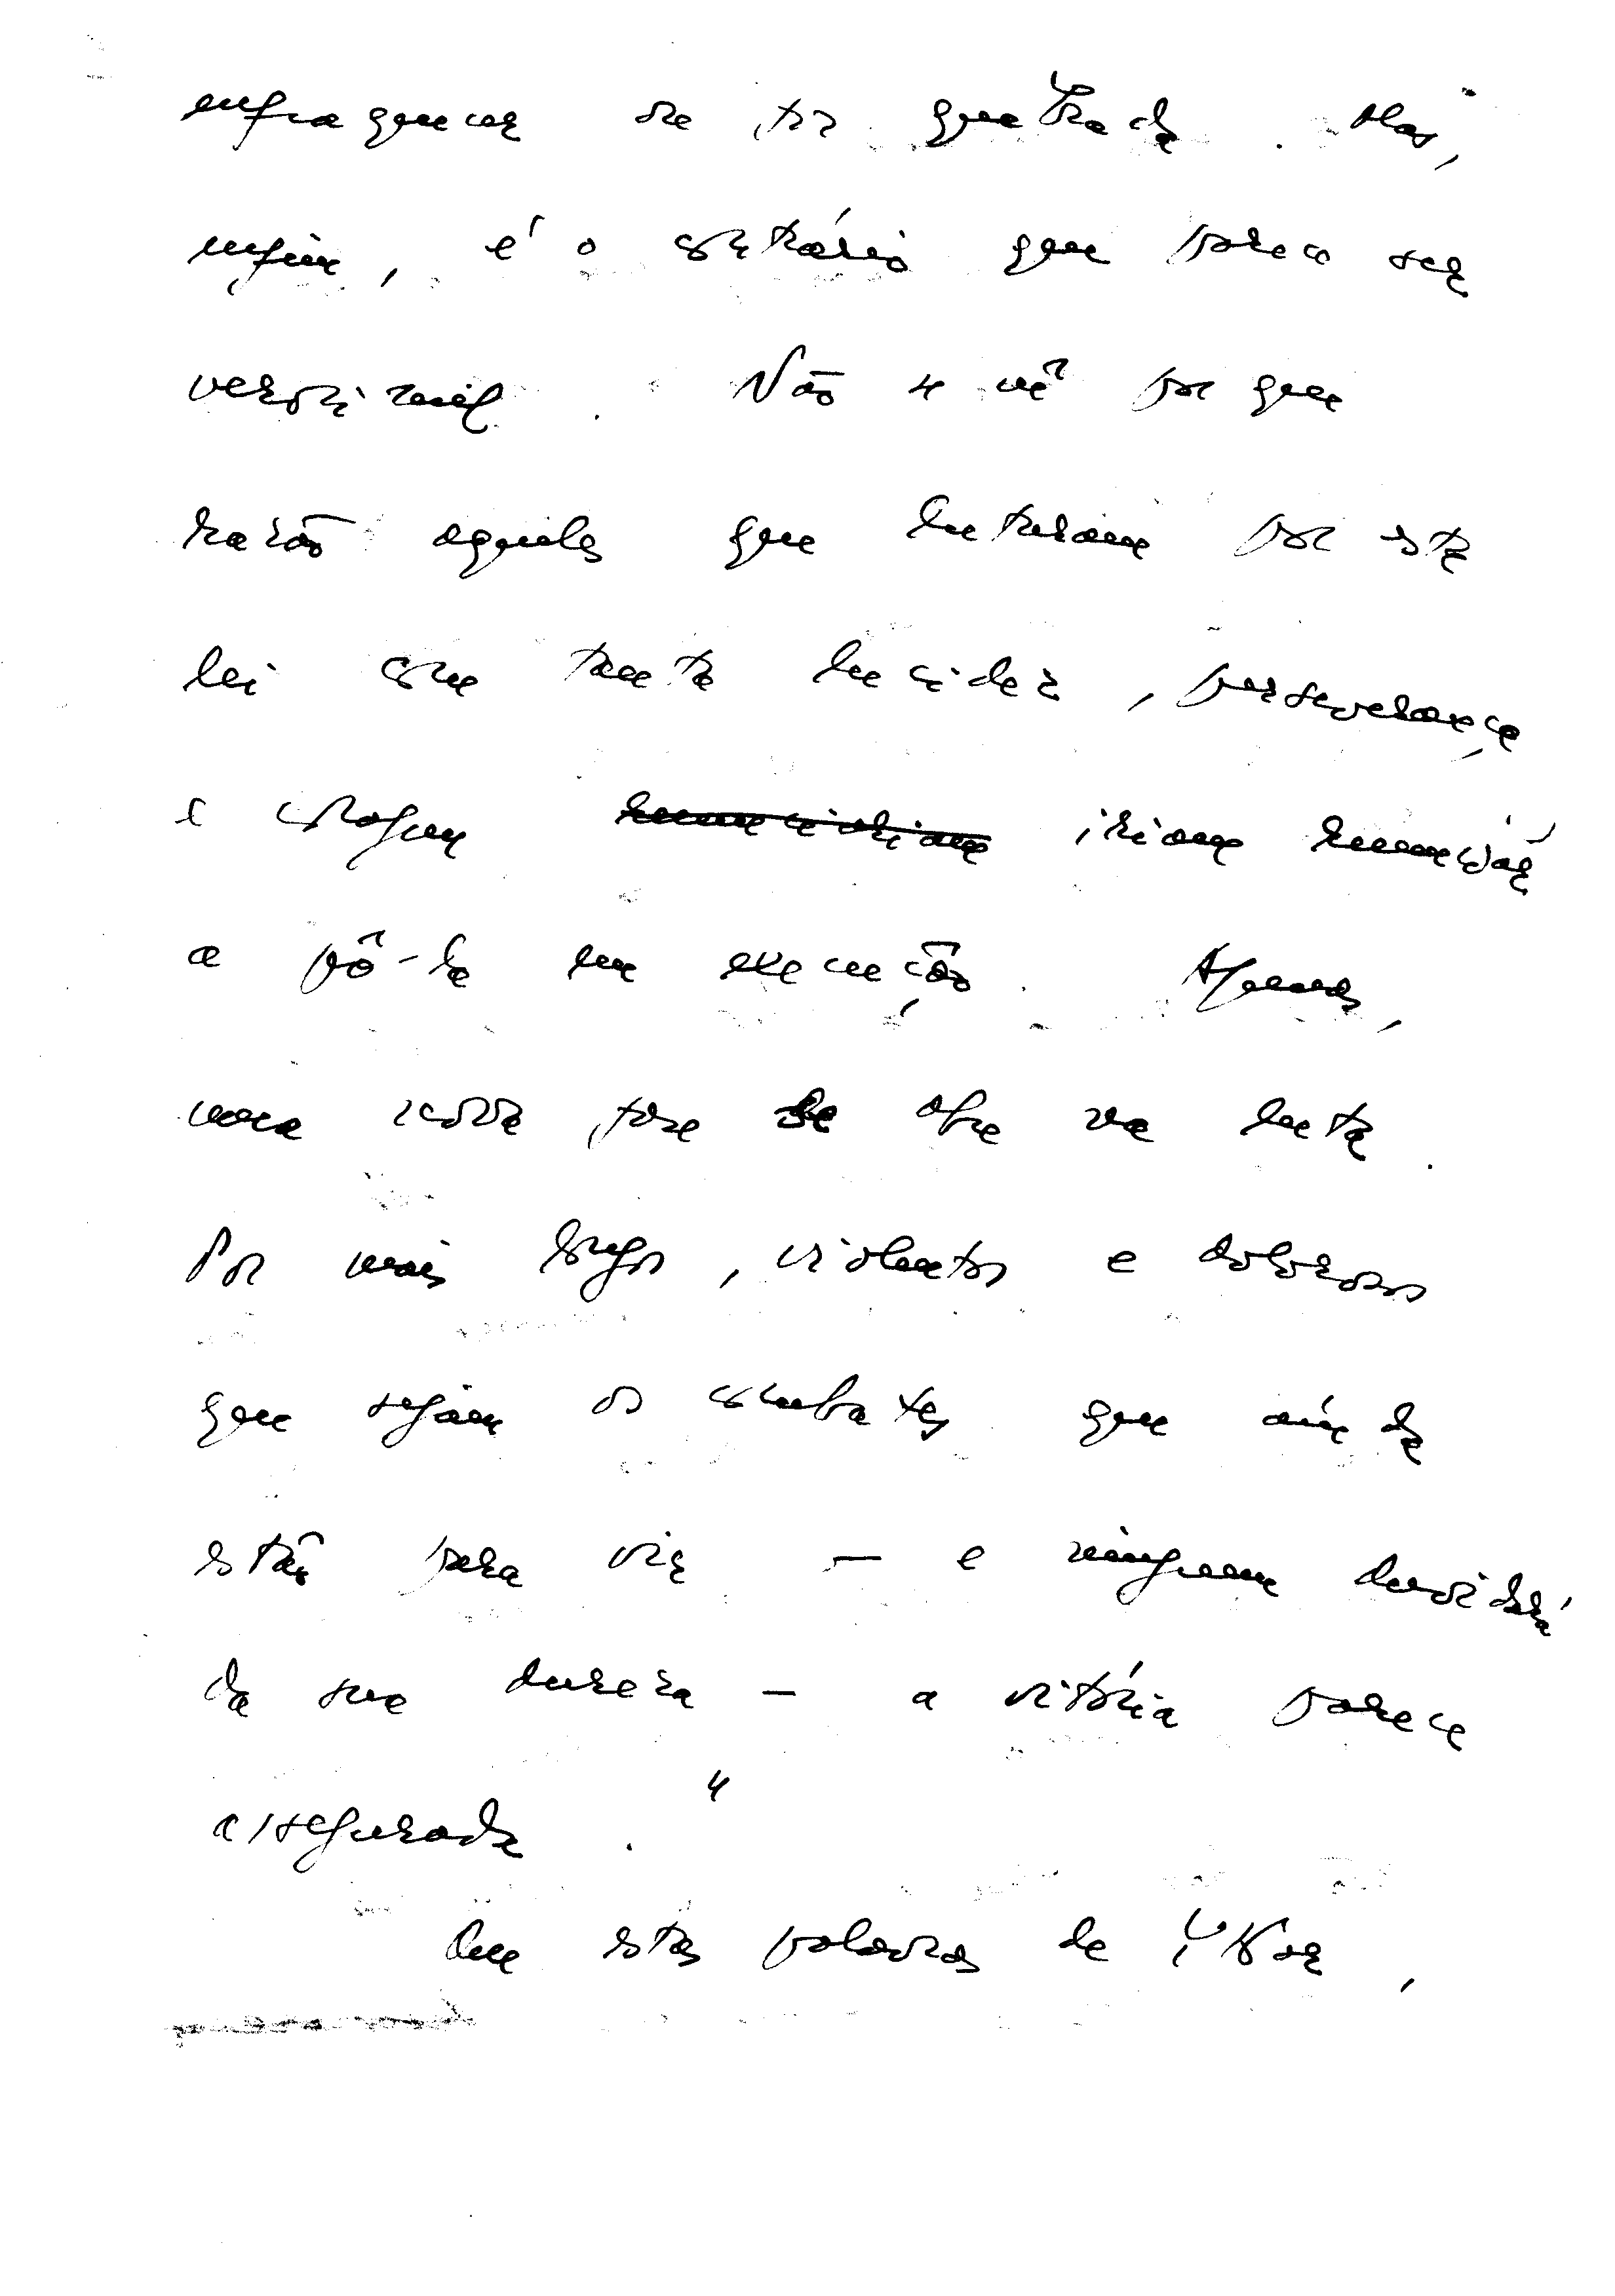 enfraquecer ou ter quebrada. Mas,
enfim, é o contrário que parece ser
verosímil. Não se vê por que
razão aqueles que lutaram por esta
lei com tanta lucidez, perseverança
e coragem renunciariam iriam renunciar
a pô-la em execução. Apenas,
uma nova fase se abre na luta.
Por mais longos, violentos e dolorosos
que sejam os combates que ainda
estão para vir — e ninguém duvidará
da sua dureza — a vitória parece
assegurada."
Que estas palavras de